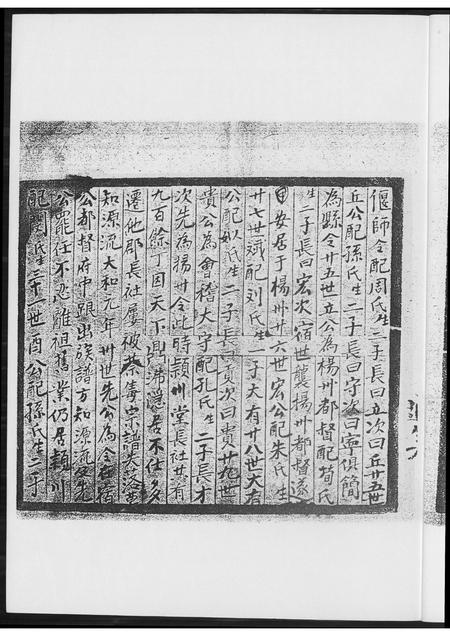 偃師令配周氏生二子長曰立次曰丘廿五世
丘公配孫氏生二子長曰守次曰寧俱簡
為縣令廿五世立公為楊州都督配荀氏
生二子長曰宏次宿世襲楊州都督遂
安居于楊州廿六世宏公配朱氏生
廿七世斌配刘氏生一子大有廿八世大有
公配姒氏生二子長曰貢次曰貴廿九世
貴公為會稽大守配孔氏生二子長才
次先為揚州令此時頴州堂長社共有
九百餘丁因天下鼎沸農居不仕多
遷他郡長社屡被荼毒宗譜失淪莫
知源流大和元年卅世先公為令在宿
公都督府中跟出族譜方知源流先
公罷任不忍離祖舊業仍居頴川
配周氏生二子卅一世酉公配孫氏生二子